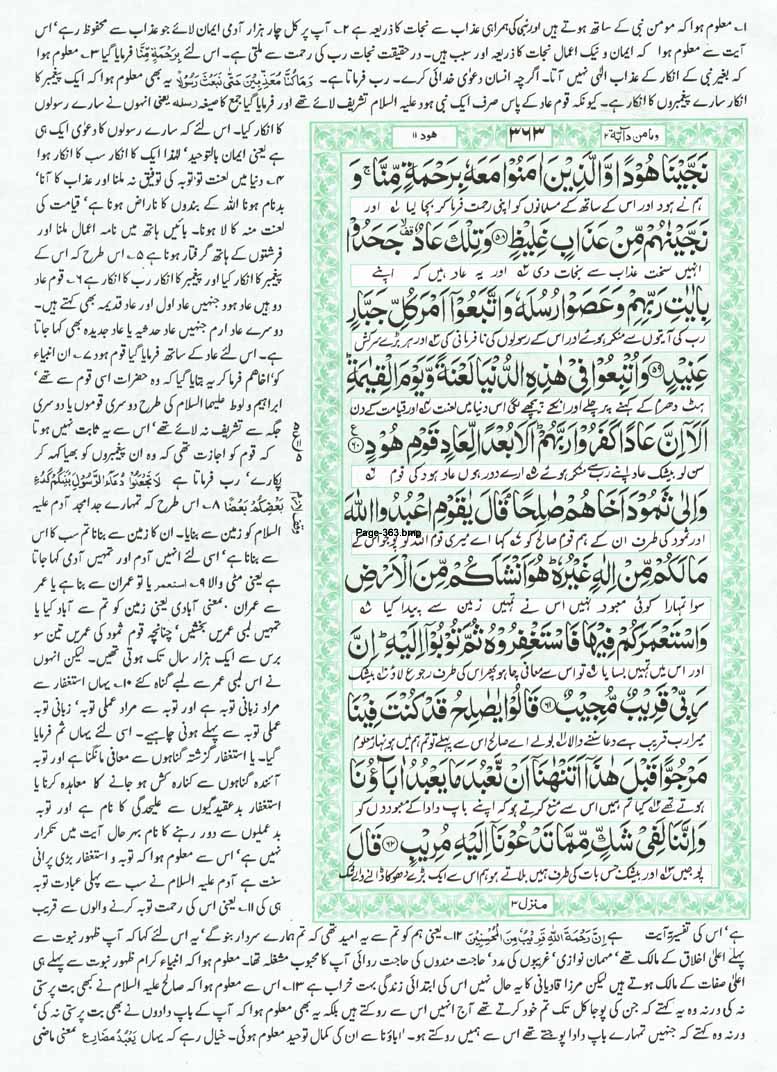 ۱۔ معلوم ہوا کہ مومن نبی کے ساتھ ہوتے ہیں اور نبی کی ہمراہی عذاب سے نجات کا ذریعہ ہے ۲۔ آپ پر کل چار ہزار آدمی ایمان لائے جو عذاب سے محفوظ رہے' اس
آیت سے معلوم ہوا کہ ایمان و نیک اعمال نجات کا ذریعہ اور سبب ہیں۔ در حقیقت نجات رب کی رحمت سے ملتی ہے۔ اس لئے بِرَحْمَةٍ مِّنَّا فرمایا گیا ۳۔ معلوم ہوا
کہ بغیر نبی کے انکار کے عذاب الٰہی نہیں آتا۔ اگرچہ انسان دعوٰی خدائی کرے۔ رب فرماتا ہے۔ وَمَا كُنَّا مُعَذِّبِيْنَ حَتّٰى نَبْعَثَ رَسُوْلًا یہ بھی معلوم ہوا کہ ایک پیغمبر کا
انکار سارے پیغمبروں کا انکار ہے۔ کیونکہ قوم عاد کے پاس صرف ایک نبی ہود علیہ السلام تشریف لائے تھے اور فرمایا گیا جمع کا صیغہ رسلہ یعنی انہوں نے سارے رسولوں
کا انکار کیا۔ اس لئے کہ سارے رسولوں کا دعوٰی ایک ہی
ہے یعنی ایمان بالتوحید' لہٰذا ایک کا انکار سب کا انکار ہوا
۴۔ دنیا میں لعنت تو توبہ کی توفیق نہ ملنا اور عذاب کا آنا'
بدنام ہونا اللہ کے بندوں کا ناراض ہونا ہے' قیامت کی
لعنت منہ کالا ہونا۔ بائیں ہاتھ میں نامہ اعمال ملنا اور
فرشتوں کے ہاتھ گرفتار ہونا ہے ۵۔ اس طرح کہ اس کے
پیغمبر کا انکار کیا اور پیغمبر کا انکار رب کا انکار ہے ۶۔ قوم عاد
دو ہیں عاد ہود جنہیں عاد اول اور عاد قدیمہ بھی کہتے ہیں۔
دوسرے عاد ارم جنہیں عاد حدثیہ یا عاد جدیدہ بھی کہا جاتا
ہے۔ اس لئے عاد کے ساتھ فرمایا گیا قوم ہود ۷۔ ان انبیاء
کو' اخاھم فرما کر یہ بتایا گیا کہ وہ حضرات اسی قوم سے تھے'
ابراہیم و لوط علیہما السلام کی طرح دوسری قوموں یا دوسری
جگہ سے تشریف نہ لائے تھے' اس سے یہ ثابت نہیں ہوتا
کہ قوم کو اجازت تھی کہ وہ ان پیغمبروں کو بھیا کہہ کر
پکارے' رب فرماتا ہے لَا تَجْعَلُوْا دُعَآءَ الرَّسُوْلِ بَيْنَكُمْ كَدُعَآءِ
بَعْضِكُمْ بَعْضًا ۸۔ اس طرح کہ تمہارے جد امجد آدم علیہ
السلام کو زمین سے بنایا۔ ان کا زمین سے بنانا تم سب کا اس
سے بنانا ہے' اسی لئے انہیں آدم اور تمہیں آدمی کہا جاتا
ہے یعنی مٹی والا ۹۔ استعمر یا تو عمران سے بنا ہے یا عمر
سے عمران ' بمعنی آبادی یعنی زمین کو تم سے آباد کیا یا
تمہیں لمبی عمریں بخشیں' چنانچہ قوم ثمود کی عمریں تین سو
برس سے ایک ہزار سال تک ہوتی تھیں۔ لیکن انہوں
نے اس لمبی عمر سے لمبے گناہ کئے ۱۰۔ یہاں استغفار سے
مراد زبانی توبہ ہے اور توبہ سے مراد عملی توبہ' زبانی توبہ
عملی توبہ سے پہلے ہونی چاہیے۔ اسی لئے یہاں ثم فرمایا
گیا۔ یا استغفار گزشتہ گناہوں سے معافی مانگنا ہے اور توبہ
آئندہ گناہوں سے کنارہ کش ہو جانے کا معاہدہ کرنا یا
استغفار بدعقیدگیوں سے علیحدگی کا نام ہے اور توبہ
بد عملیوں سے دور رہنے کا نام بہر حال آیت میں تکرار
نہیں ہے' اس سے معلوم ہوا کہ توبہ و استغفار بڑی پرانی
سنت ہے آدم علیہ السلام نے سب سے پہلی عبادت توبہ
ہی کی ۱۱۔ یعنی اس کی رحمت توبہ کرنے والوں سے قریب
ومامن دآبۃ ۱۲
۳۶۳
ھود ۱۱
نَجَّيْنَا هُوْدًا وَّالَّذِيْنَ اٰمَنُوْا مَعَهٗ بِرَحْمَةٍ مِّنَّا ۚ وَ
ہم نے ہود اور اس کے ساتھ کے مسلمانوں کو اپنی رحمت فرما کر بچا لیا اور
نَجَّيْنٰهُمْ مِّنْ عَذَابٍ غَلِيْظٍ ۵۸ وَتِلْكَ عَادٌ ۙ جَحَدُوْا
انہیں سخت عذاب سے نجات دی اور یہ عاد ہیں کہ اپنے
بِاٰيٰتِ رَبِّهِمْ وَعَصَوْا رُسُلَهٗ وَاتَّبَعُوْٓا اَمْرَ كُلِّ جَبَّارٍ
رب کی آیتوں سے منکر ہوئے اور اس کے رسولوں کی نافرمانی کی اور ہر بڑے سرکش
عَنِيْدٍ ۵۹ وَاُتْبِعُوْا فِيْ هٰذِهِ الدُّنْيَا لَعْنَةً وَّيَوْمَ الْقِيٰمَةِ ؕ
ہٹ دھرم کے کہنے پر چلے اور انکے پیچھے لگی اس دنیا میں لعنت اور قیامت کے دن
اَلَآ اِنَّ عَادًا كَفَرُوْا رَبَّهُمْ ؕ اَلَا بُعْدًا لِّعَادٍ قَوْمِ هُوْدٍ ۶۰
سن لو بیشک عاد اپنے رب سے منکر ہوئے ارے دور ہوں عاد ہود کی قوم
وَاِلٰى ثَمُوْدَ اَخَاهُمْ صٰلِحًا ۘ قَالَ يٰقَوْمِ اعْبُدُوا اللّٰهَ
Page-363.bmp
اور ثمود کی طرف ان کے ہم قوم صالح کو کہا اے میری قوم اللہ کو پوجو اس کے
مَا لَكُمْ مِّنْ اِلٰهٍ غَيْرُهٗ ؕ هُوَ اَنْشَاَكُمْ مِّنَ الْاَرْضِ
سوا تمہارا کوئی معبود نہیں اس نے تمہیں زمین سے پیدا کیا
وَاسْتَعْمَرَكُمْ فِيْهَا فَاسْتَغْفِرُوْهُ ثُمَّ تُوْبُوْٓا اِلَيْهِ ؕ اِنَّ
اور اس میں تمہیں بسایا تو اس سے معافی چاہو پھر اس کی طرف رجوع لاؤ بیشک
رَبِّيْ قَرِيْبٌ مُّجِيْبٌ ۶۱ قَالُوْا يٰصٰلِحُ قَدْ كُنْتَ فِيْنَا
میرا رب قریب ہے دعا سننے والا بولے اے صالح اس سے پہلے تو تم ہم میں ہونہار معلوم
مَرْجُوًّا قَبْلَ هٰذَآ اَتَنْهٰنَآ اَنْ نَّعْبُدَ مَا يَعْبُدُ اٰبَآؤُنَا
ہوتے تھے کیا تم ہمیں اس سے منع کرتے ہو کہ اپنے باپ دادا کے معبودوں کو
وَاِنَّنَا لَفِيْ شَكٍّ مِّمَّا تَدْعُوْنَآ اِلَيْهِ مُرِيْبٍ ۶۲ قَالَ
پوجیں اور بیشک جس بات کی طرف ہمیں بلاتے ہو ہم اس سے ایک بڑے دھوکا ڈالنے والے شک
منزل ۳
ہے' اس کی تفسیر آیت ہے اِنَّ رَحْمَةَ اللّٰهِ قَرِيْبٌ مِّنَ الْمُحْسِنِيْنَ ۱۲۔ یعنی ہم کو تم سے یہ امید تھی کہ تم ہمارے سردار بنو گے' یہ اس لئے کہا کہ آپ ظہور نبوت سے
پہلے اعلیٰ اخلاق کے مالک تھے' مہمان نوازی' غریبوں کی مدد' حاجت مندوں کی حاجت روائی آپ کا محبوب مشغلہ تھا۔ معلوم ہوا کہ انبیاء کرام ظہور نبوت سے پہلے ہی
اعلیٰ صفات کے مالک ہوتے ہیں لیکن مرزا قادیانی کا یہ حال نہیں اس کی ابتدائی زندگی بہت خراب ہے ۱۳۔ اس سے معلوم ہوا کہ صالح علیہ السلام نے کبھی بت پرستی
نہ کی ورنہ وہ یہ کہتے کہ جن کی پوجا کل تک تم خود کرتے تھے آج انہیں اس سے روکتے ہیں بلکہ یہ بھی معلوم ہوا کہ آپ کے باپ دادوں نے بھی بت پرستی نہ کی'
ورنہ وہ کہتے کہ جنہیں تمہارے باپ دادا پوجتے تھے اس سے ہمیں روکتے ہو۔ 'اباؤنا سے ان کی کمال توحید معلوم ہوئی۔ خیال رہے کہ یہاں يَعْبُدُ مضارع بمعنی ماضی